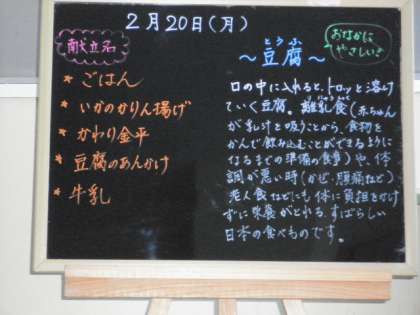 2月20日(月)
献立名
* ごはん
* いかのかりん揚げ
* かわり金平
* 豆腐のあんかけ
* 牛乳
おなかに
やさしい♪
とうふ
～豆腐～
口の中に入れると、トロッと溶け
ていく豆腐。離乳食(赤ちゃん
が乳汁を吸うことから、食物を
かんで飲み込むことができるように
なるまでの準備の食事)や、体
調が悪い時(かぜ、腹痛など)
老人食などにも体に負担をかけ
ずに栄養がとれる、すばらしい
日本の食べものです。